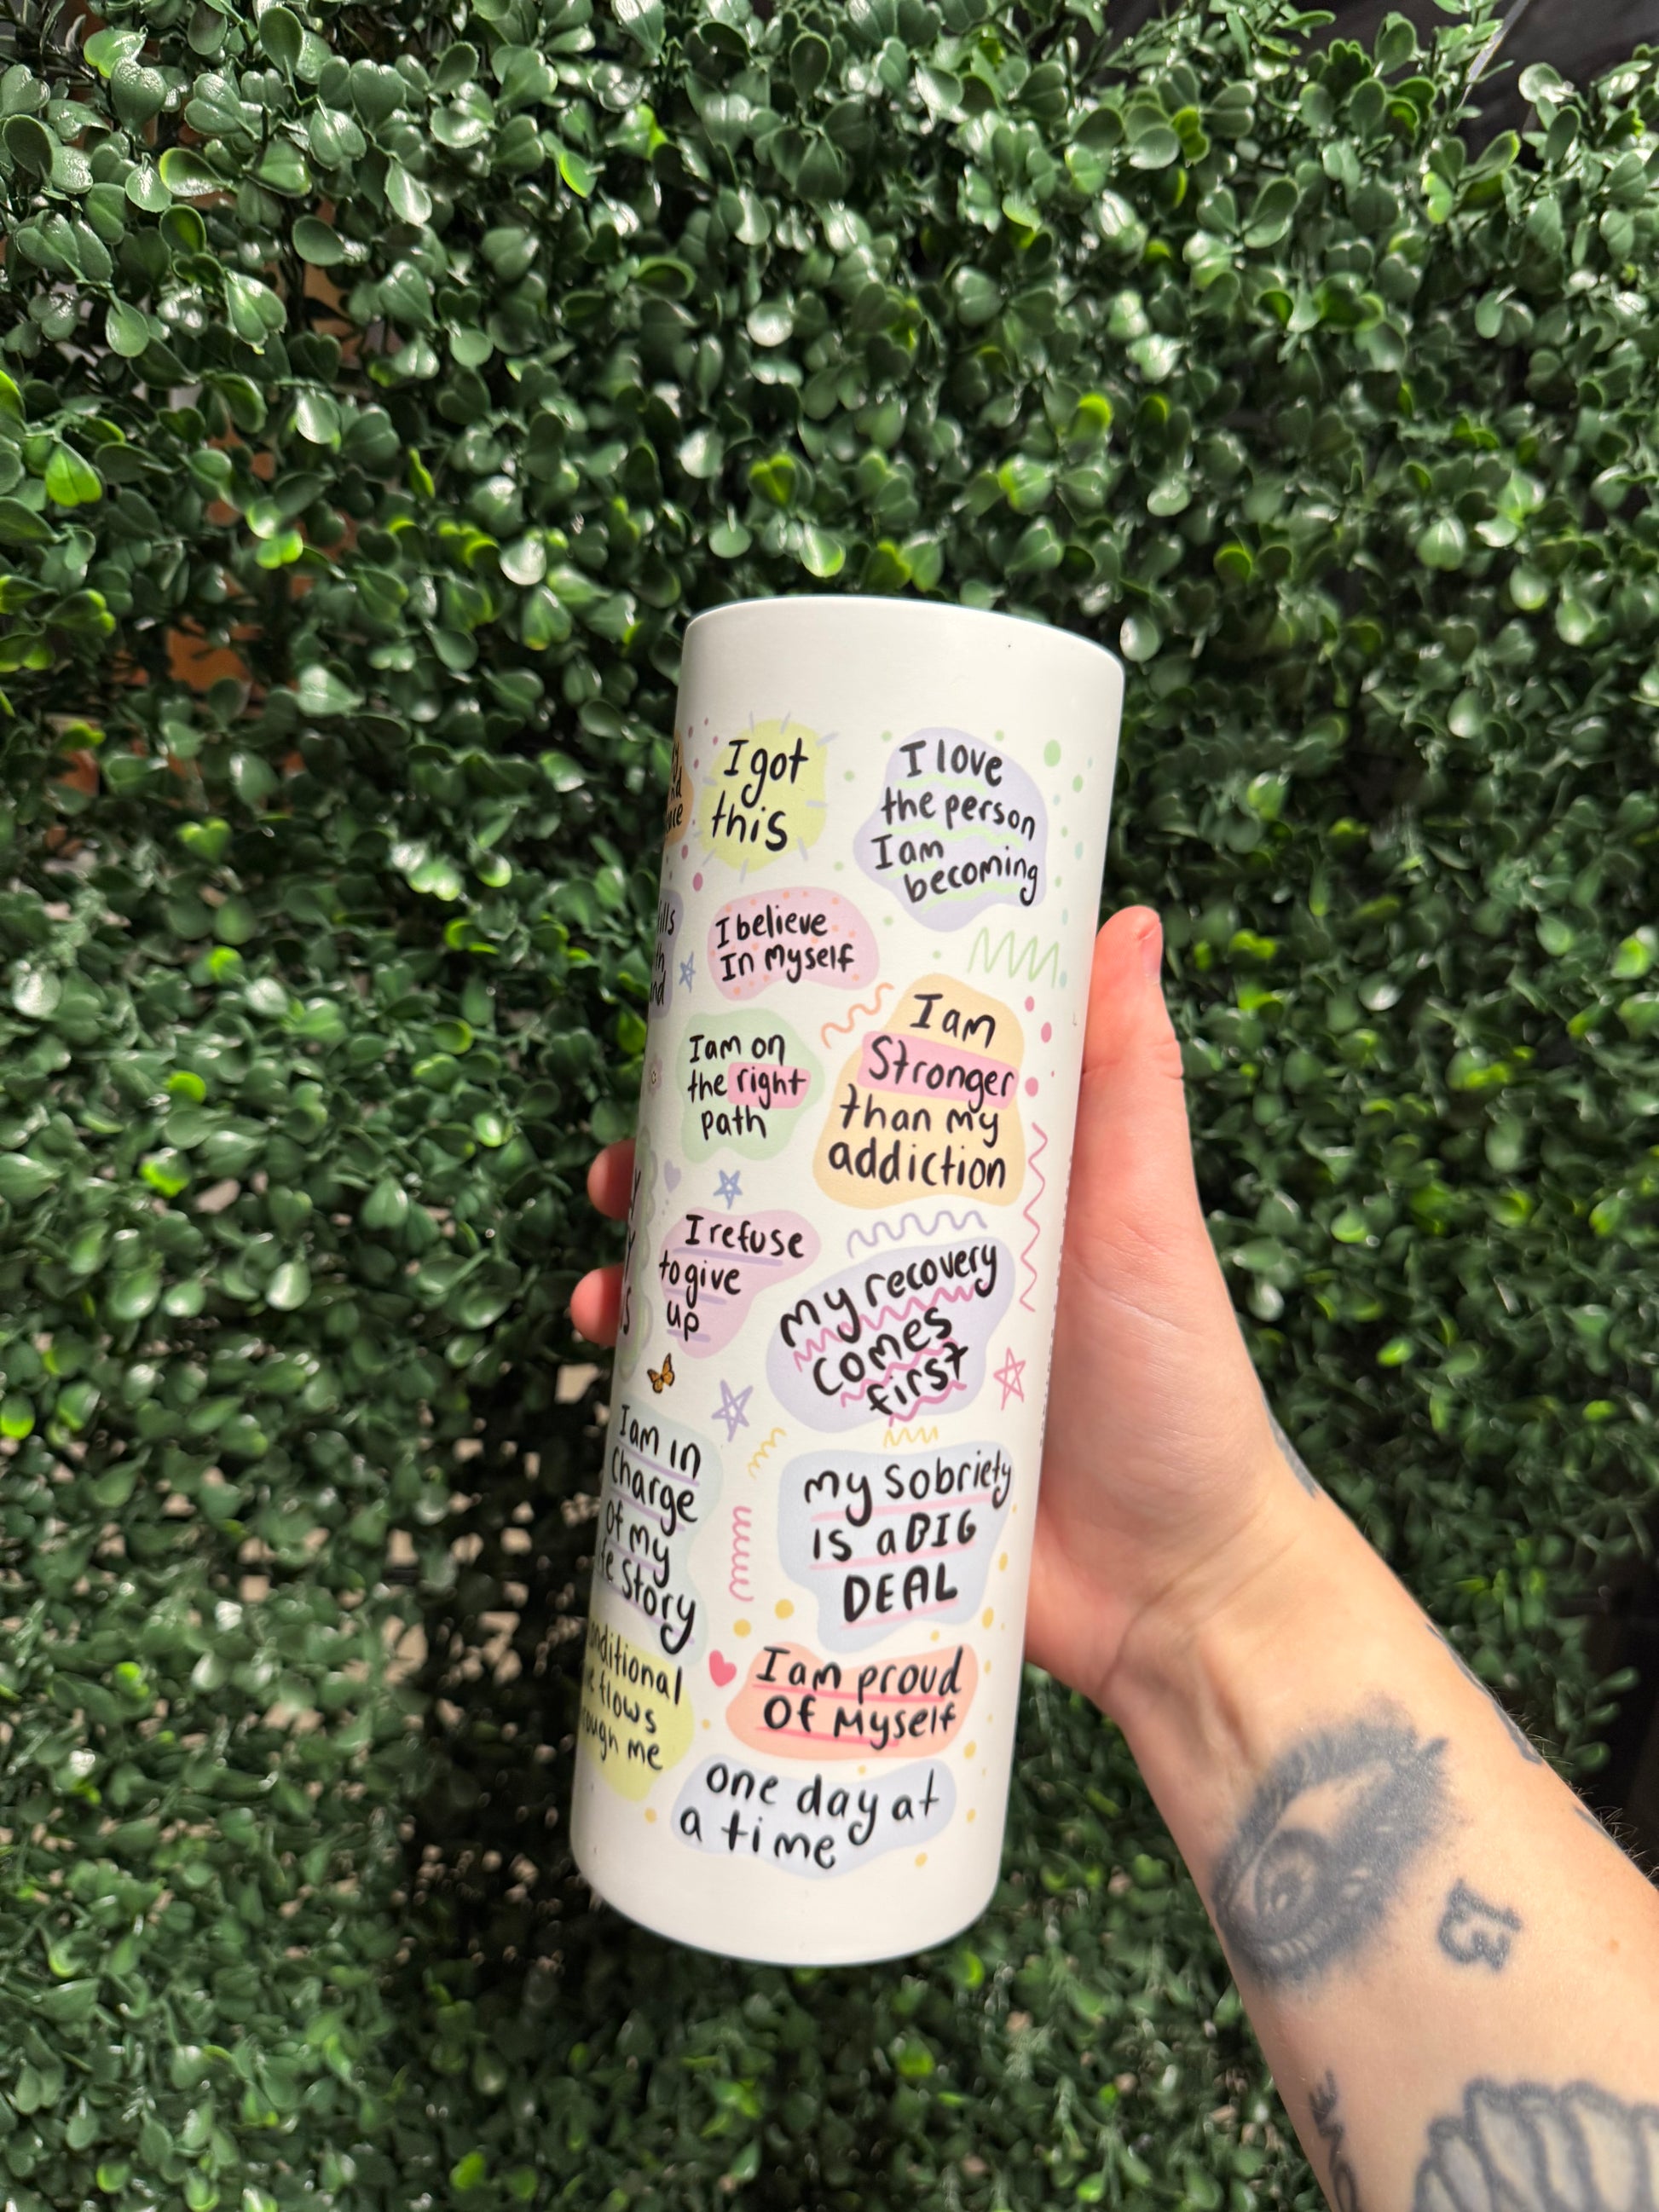 I got
this
I love
the person
I am
becoming
I believe
In Myself
I am on
the right
path
I am
Stronger
than my
addiction
I refuse
to give
up
my recovery
comes
first
I am in
charge
of my
story
my sobriety
is a BIG
DEAL
flows
me
I am proud
Of Myself
one day at
a time
13